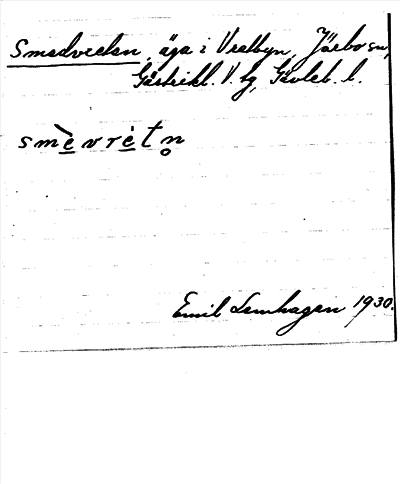 Smedvreten, äga i Vretbyn, Järbo sn,
Gästrikl. V. tg, Gävleb. l.
smèvrétn̥
Emil Lemhagen 1930.